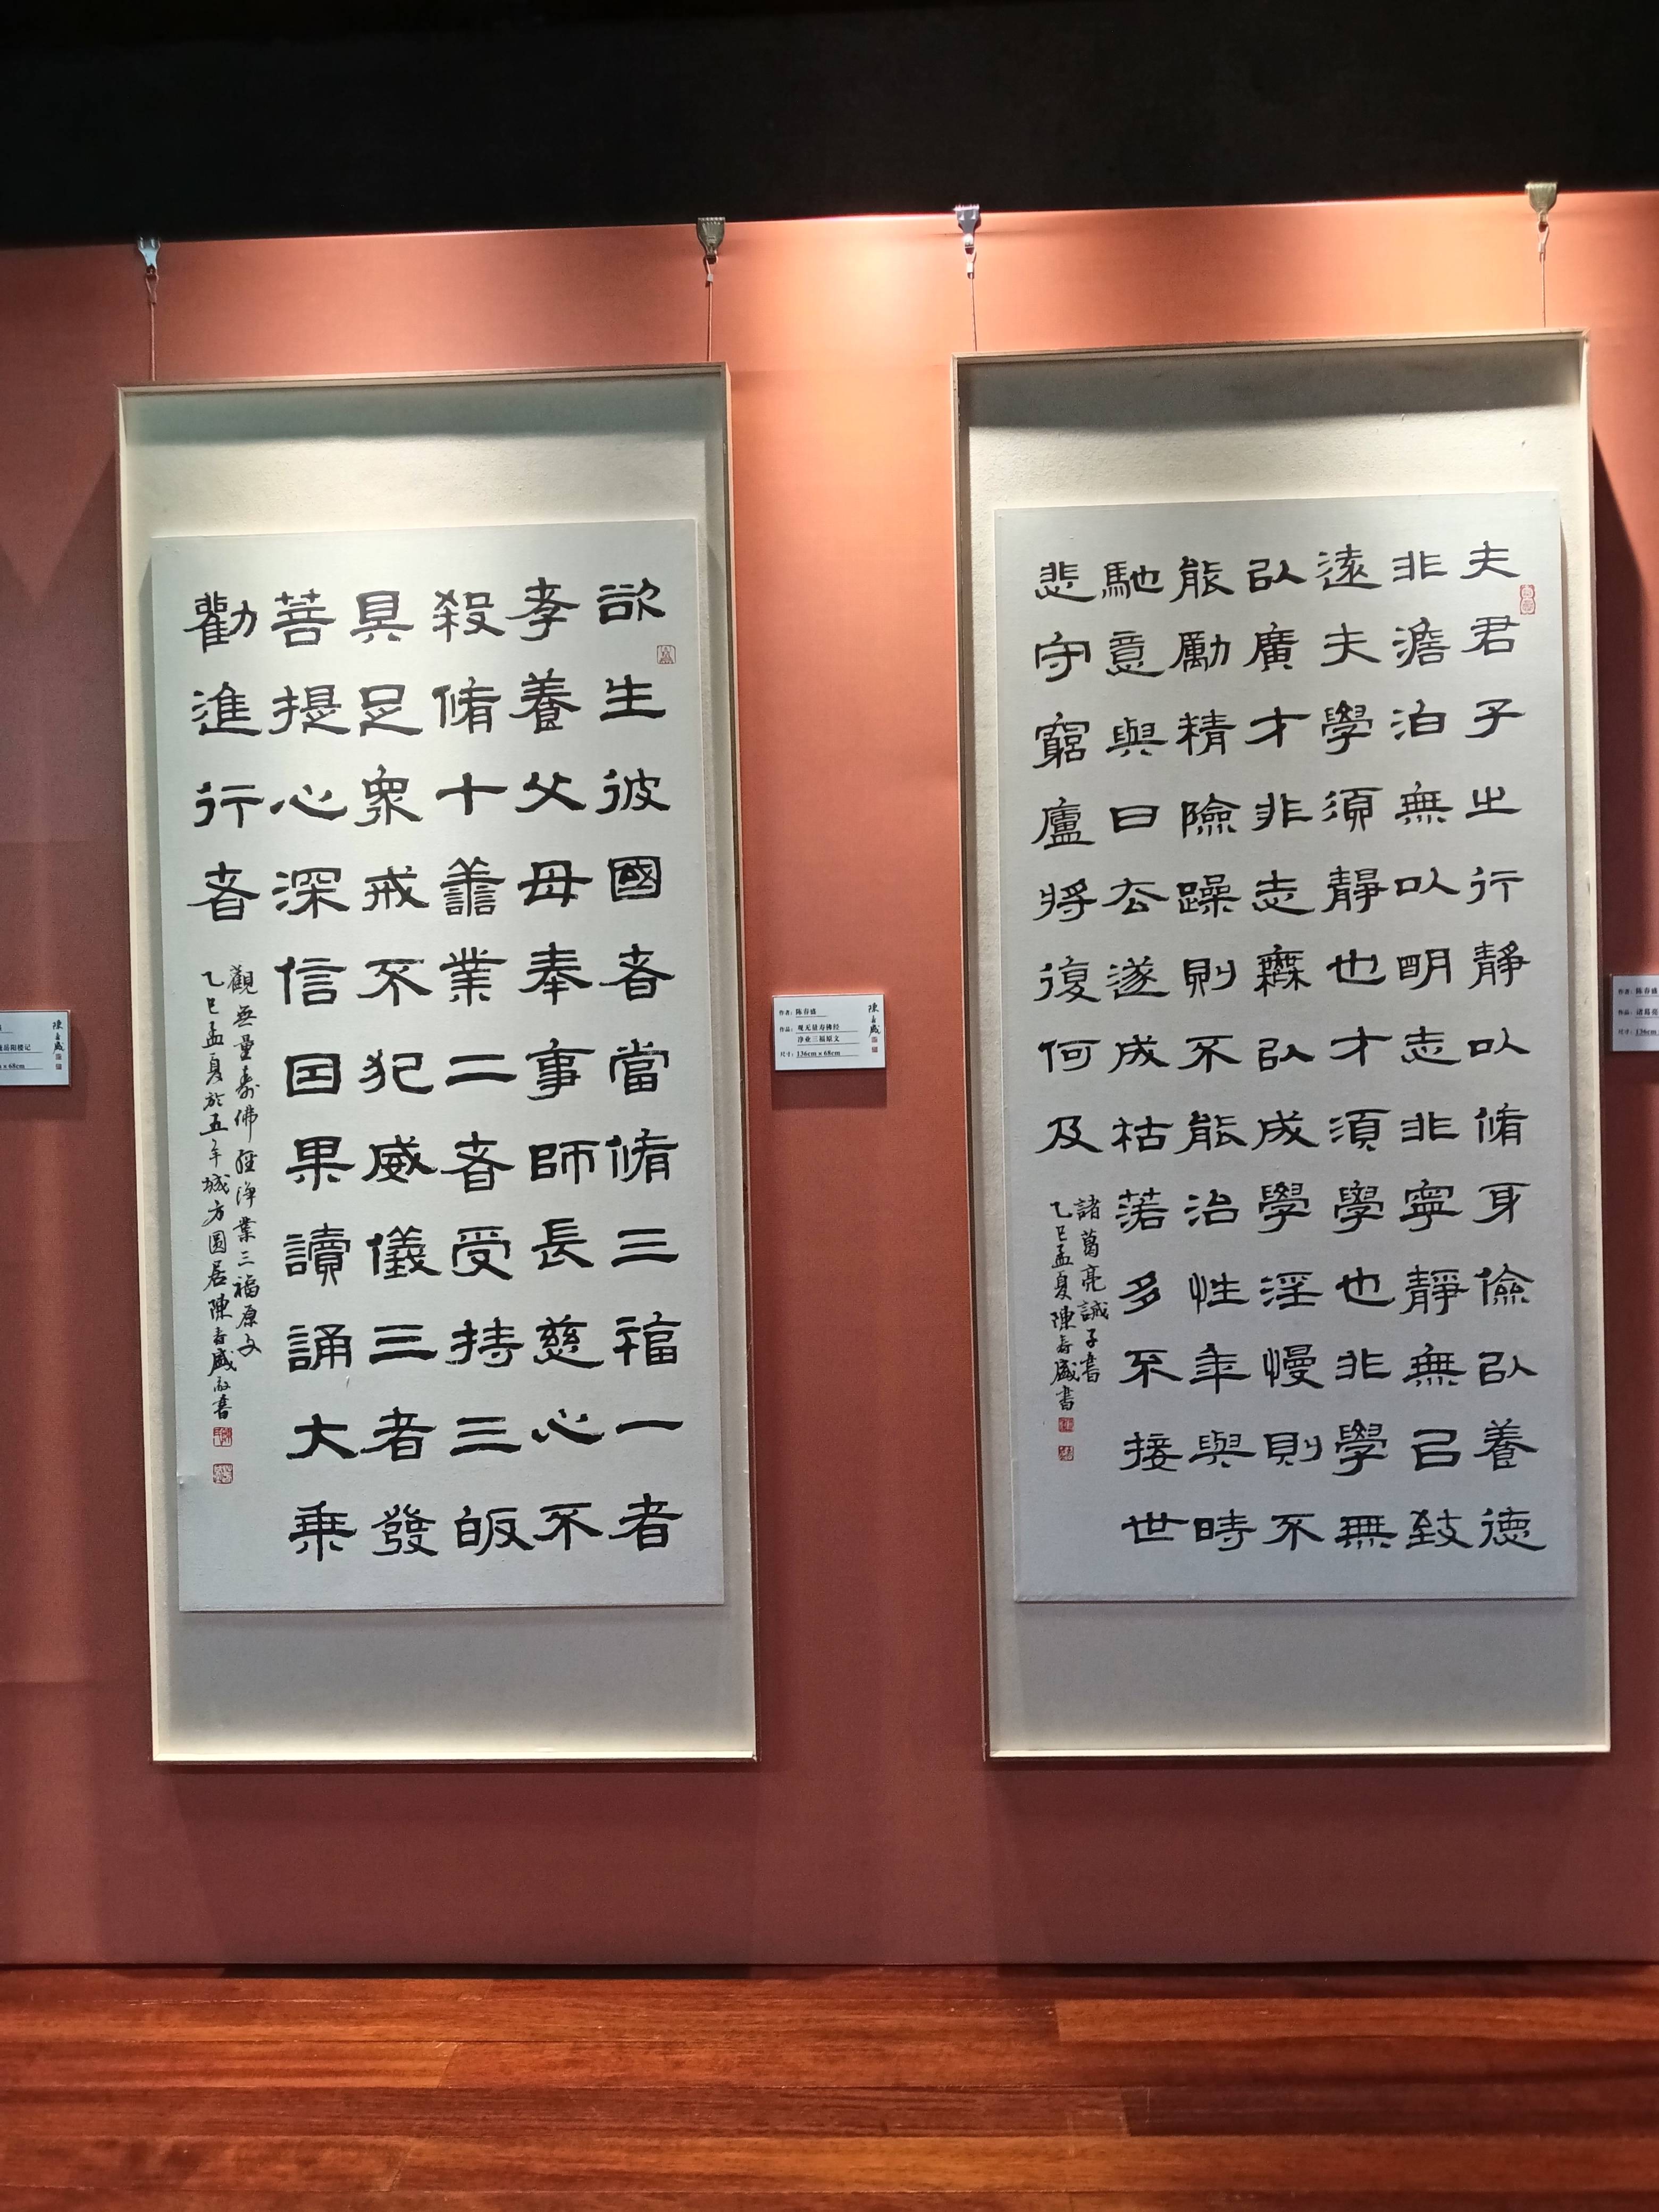 夫君子之行靜以脩身儉以養德
非澹泊無以明志非寧靜無已致
遠夫學須靜也才須學也非學無
以廣才非志無以成學淫慢則不
能勵精險躁則不能治性年與時
馳意與日去遂成枯落多不接世
悲守窮廬將復何及
諸葛亮誡子書
乙巳孟夏陳春盛書
欲生彼國者當脩三福一者
孝養父母奉事師長慈心不
殺脩十譱業二者受持三皈
具足眾戒不犯威儀三者發
菩提心深信因果讀誦大乘
勸進行者
觀無量壽佛經淨業三福原文
乙巳孟夏於五羊城方圓居陳春盛敬書
作者：陈春盛
作品：观无量寿佛经
净业三福原文
尺寸：136cm×68cm
陳春盛
岳阳楼记
m×68cm
陳春盛
作者：陈春盛
作品：诸葛亮
尺寸：136cm